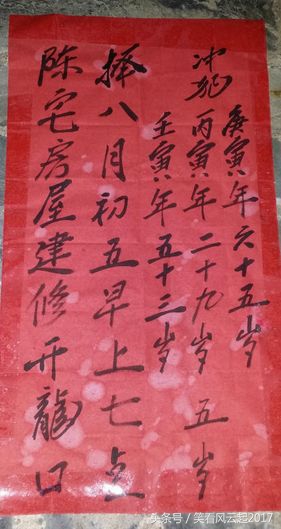 陈宅房屋建修开龍口
择八月初五早上七点
壬寅年五十三岁
冲犯丙寅年二十九岁 五岁
庚寅年六十五岁
头条号 / 笑看风云起2017